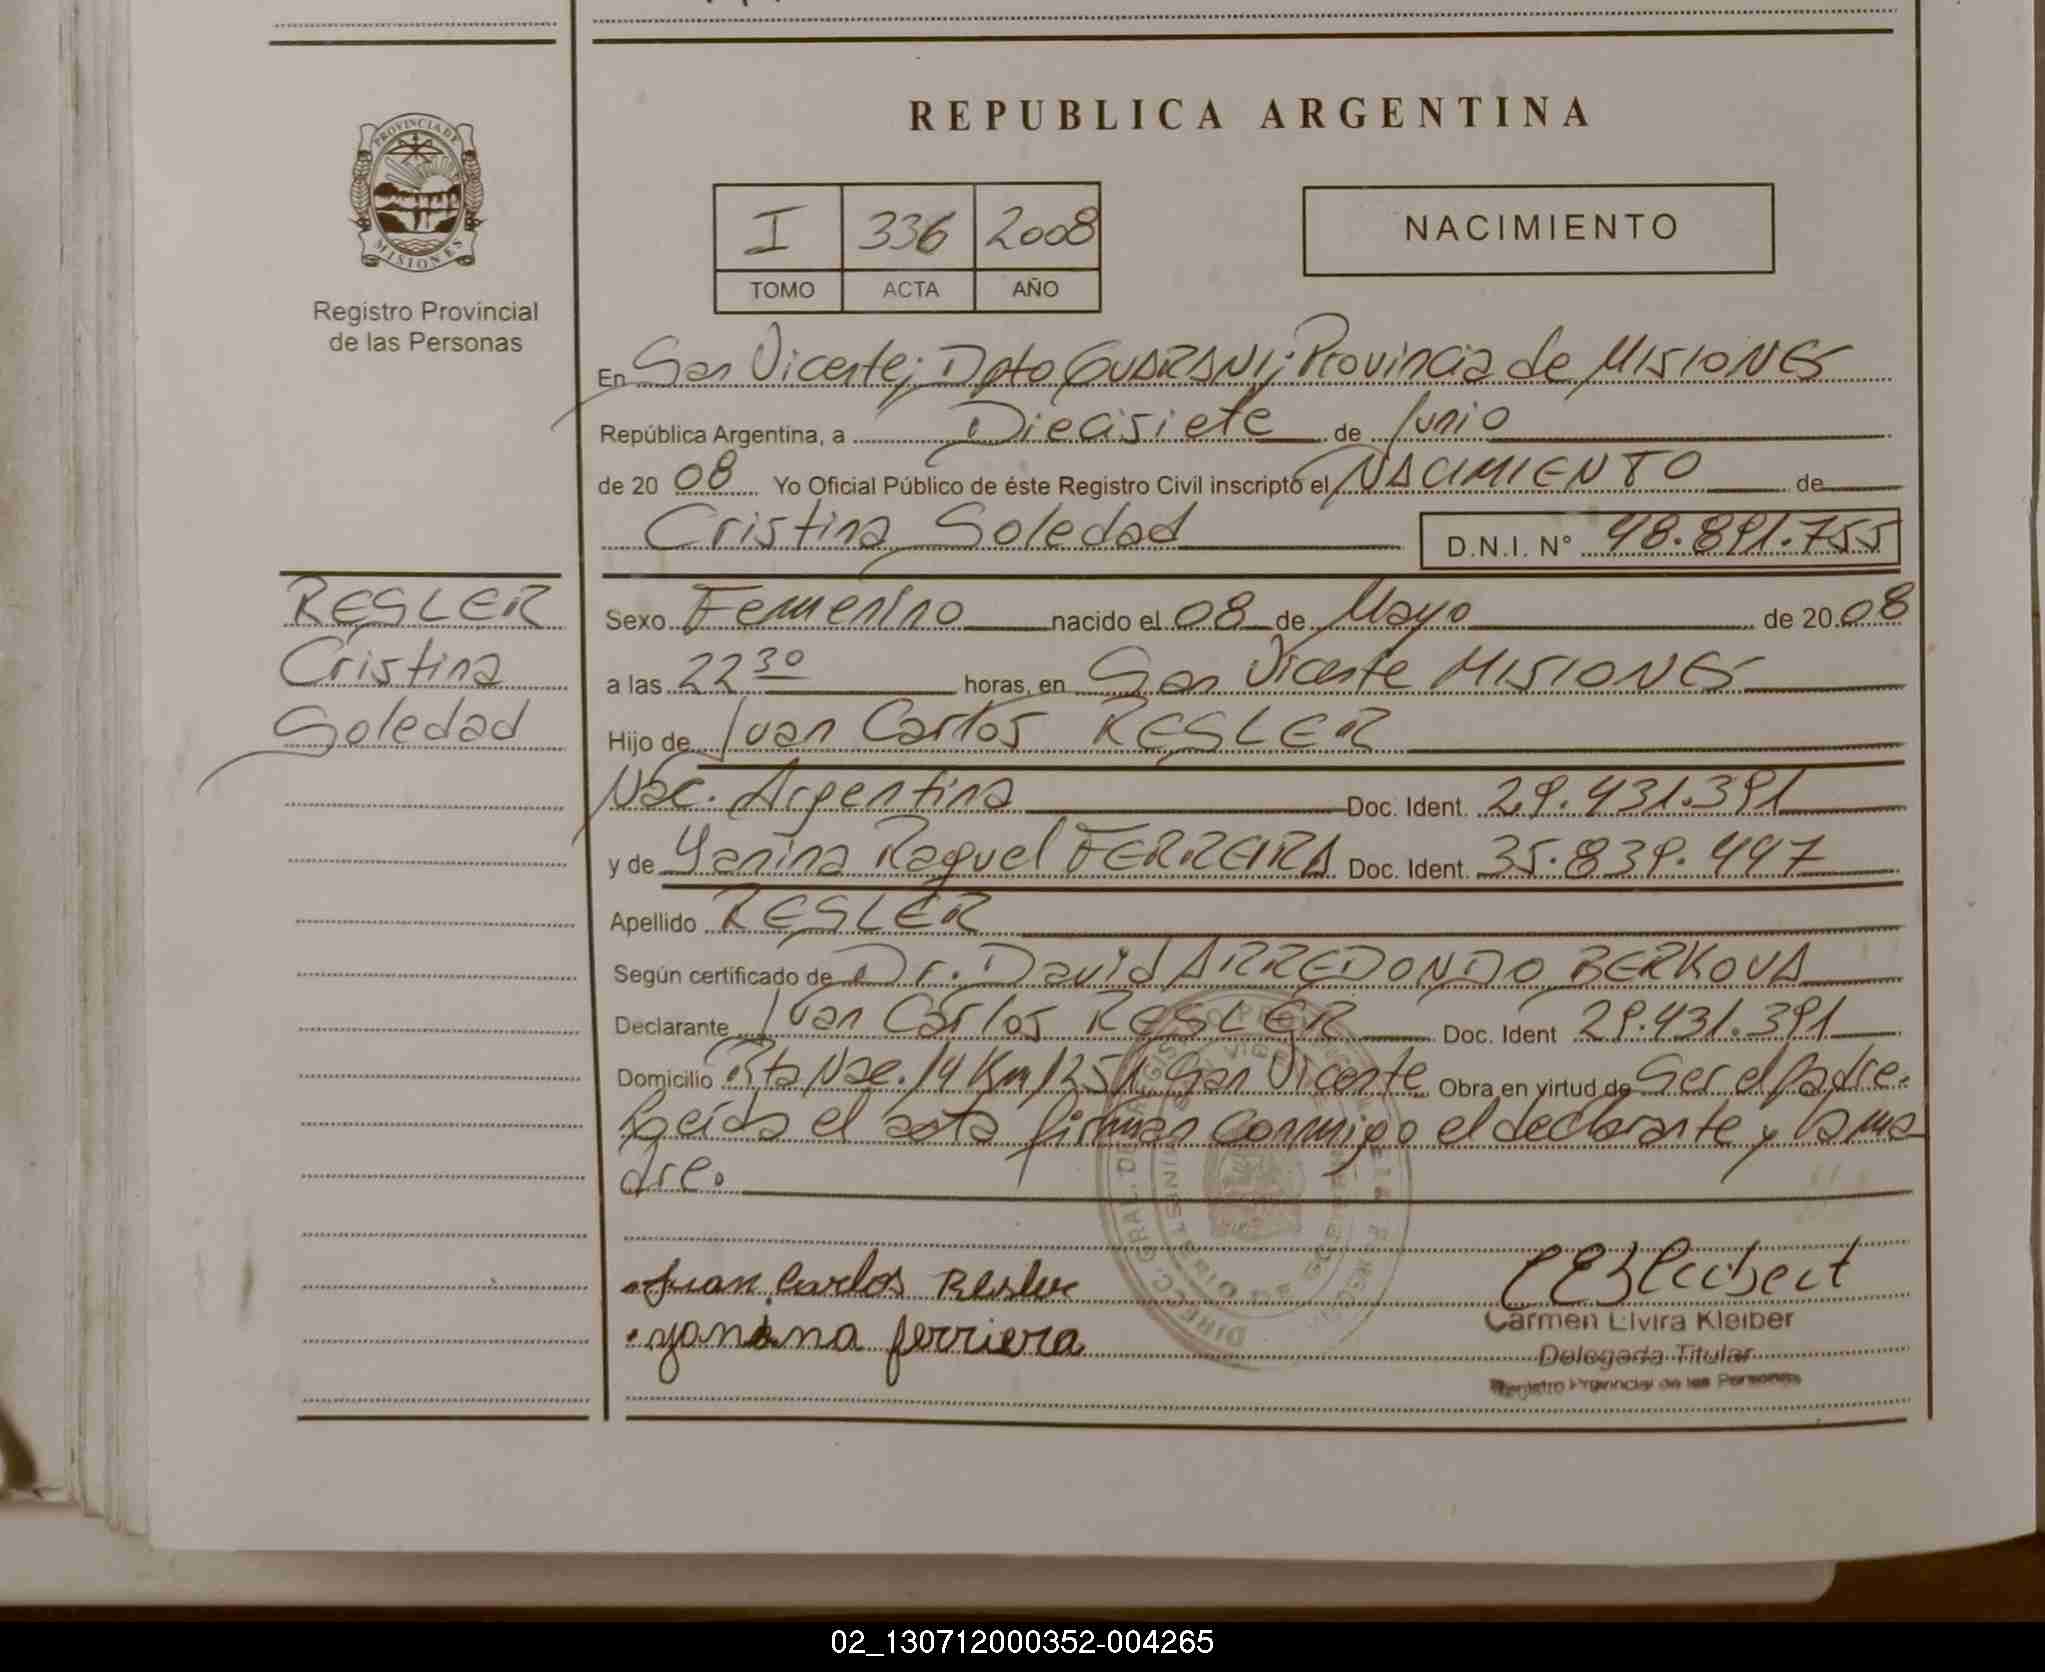 REPUBLICA ARGENTINA
PROVINCIA DE
MISIONES
Registro Provincial
de las Personas
I 336 2008
TOMO ACTA AÑO
NACIMIENTO
En San Vicente; Dpto GUARANI; Provincia de MISIONES
República Argentina, a Diecisiete de Junio
de 20 08 Yo Oficial Público de éste Registro Civil inscripto el NACIMIENTO de
Cristina Soledad D.N.I. N° 48.891.755
RESLER
Cristina
Soledad
Sexo Femenino nacido el 08 de Mayo de 20 08
a las 22 30 horas, en San Vicente MISIONES
Hijo de Juan Carlos RESLER
Nac. Argentina Doc. Ident. 29.431.391
y de Yanina Raquel FERREIRA Doc. Ident. 35.839.497
Apellido RESLER
Según certificado de Dr. David ARREDONDO BERKOVA
Declarante Juan Carlos RESLER Doc. Ident 29.431.391
Domicilio Rta Nac. 14 Km 1251 San Vicente Obra en virtud de Ser el padre.
Leída el acta firman conmigo el declarante y la ma
dre.
Juan Carlos Resler
yanina ferriera
Carmen Elvira Kleiber
Delegada Titular
Registro Provincial de las Personas
02_130712000352-004265